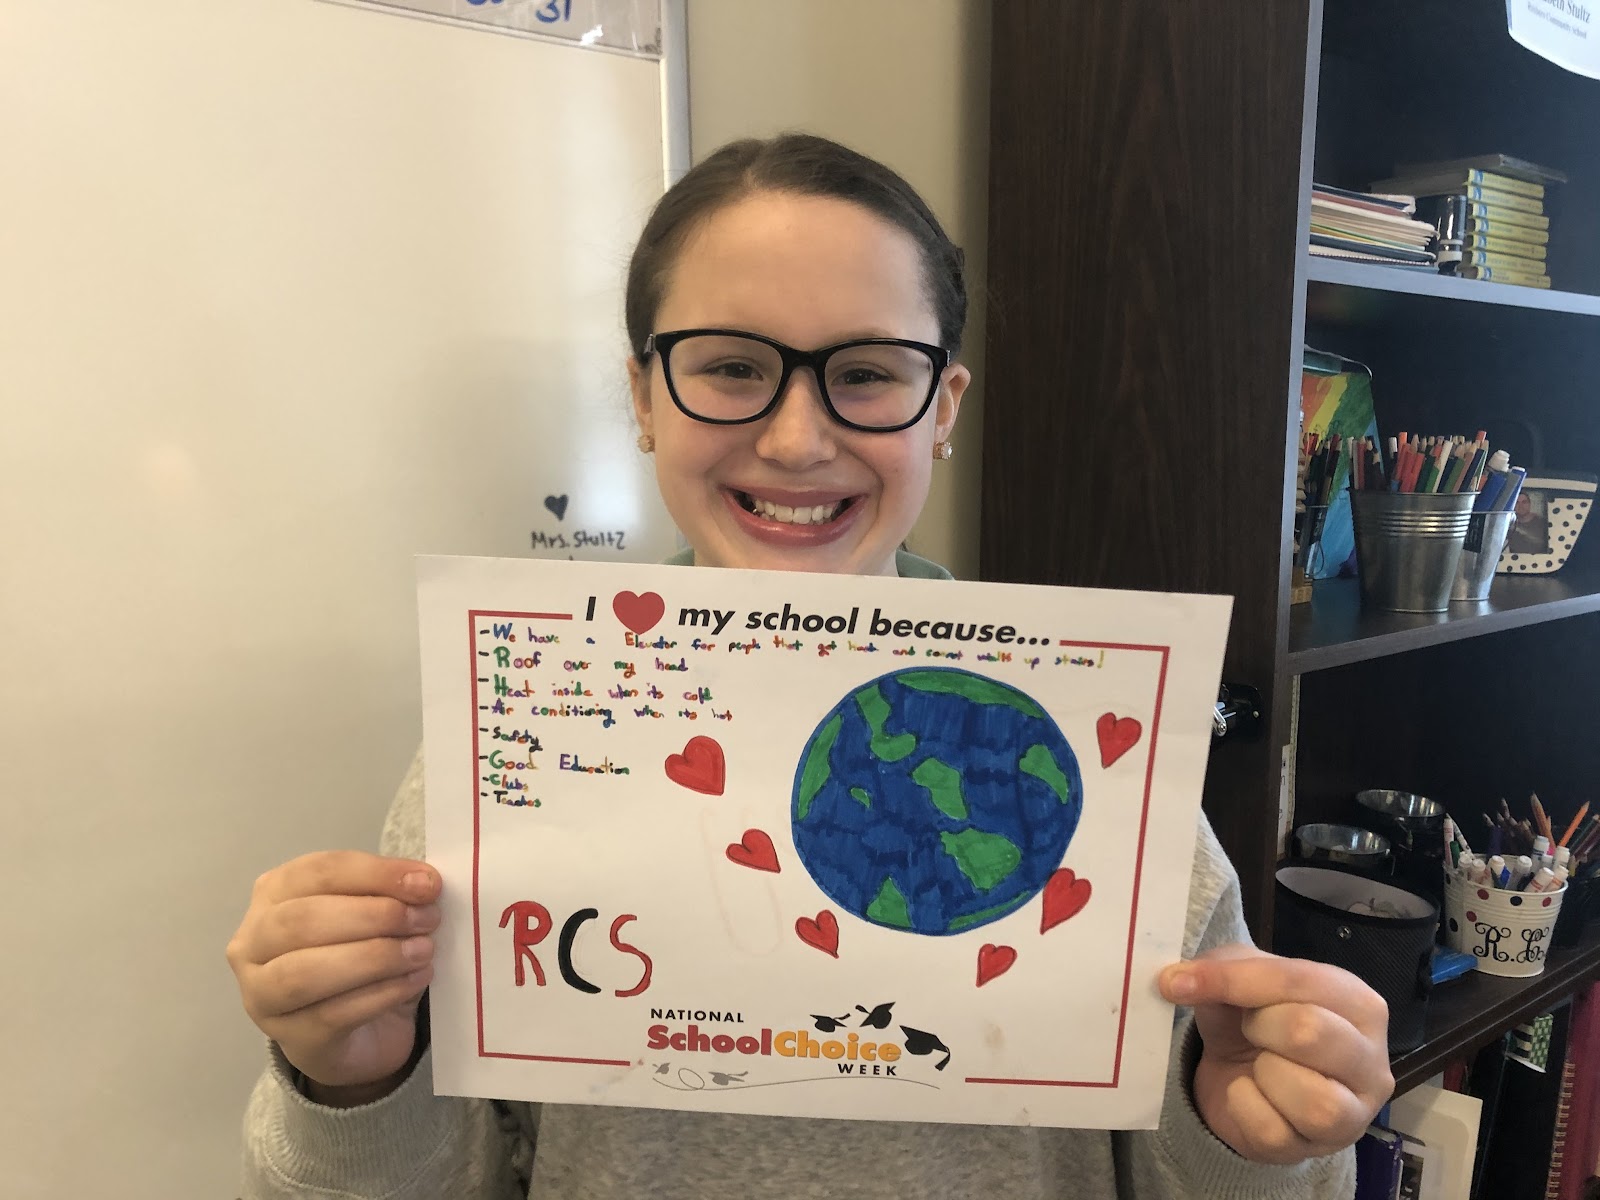 31
Stultz
Roxboro Community School
Mrs. Stultz
I my school because...
-We have a Elevator for people that get hurt and cannot walk up stairs!
-Roof over my head
-Heat inside when its cold
-Air conditioning when its hot
-Safety
-Good Education
-Clubs
-Teachers
RCS
NATIONAL
SchoolChoice
WEEK
R.C